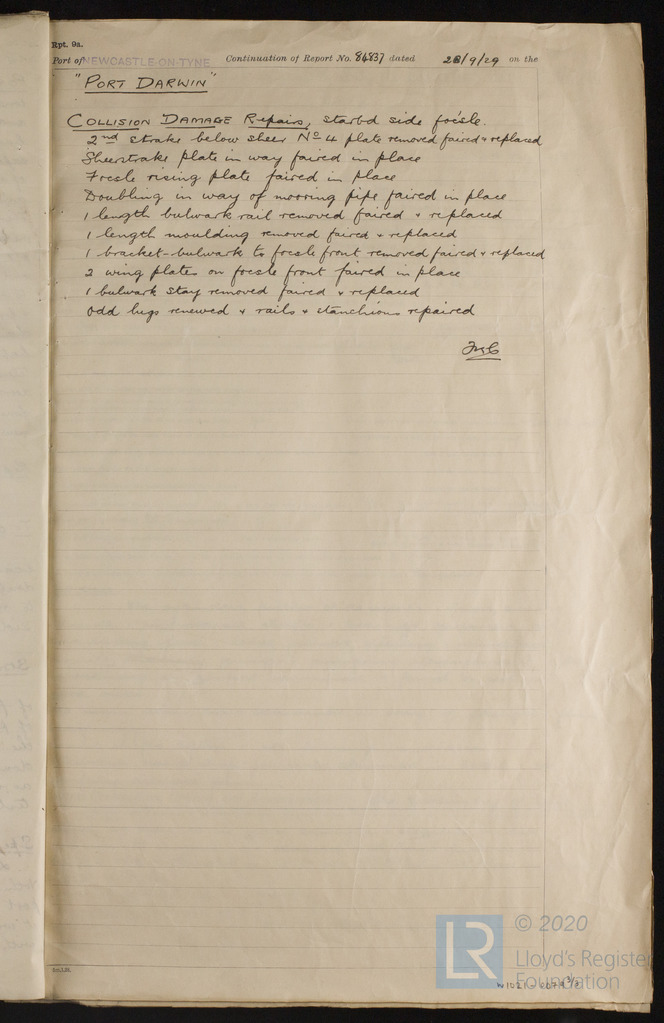 Rpt. 9a.
Port of NEWCASTLE-ON-TYNE Continuation of Report No. 84837 dated 28/9/29 on the
"PORT DARWIN"
COLLISION DAMAGE Repairs, starbd side focsle.
2nd strake below sheer No 4 plate removed faired & replaced
Sheerstrake plate in way faired in place
Focsle rising plate faired in place
Doubling in way of mooring pipe faired in place
1 length bulwark rail removed faired & replaced
1 length moulding removed faired & replaced
1 bracket-bulwark to focsle front removed faired & replaced
2 wing plates on focsle front faired in place
1 bulwark stay removed faired & replaced
Odd lugs renewed & rails & stanchions repaired
LR © 2020
Lloyd's Register
Foundation